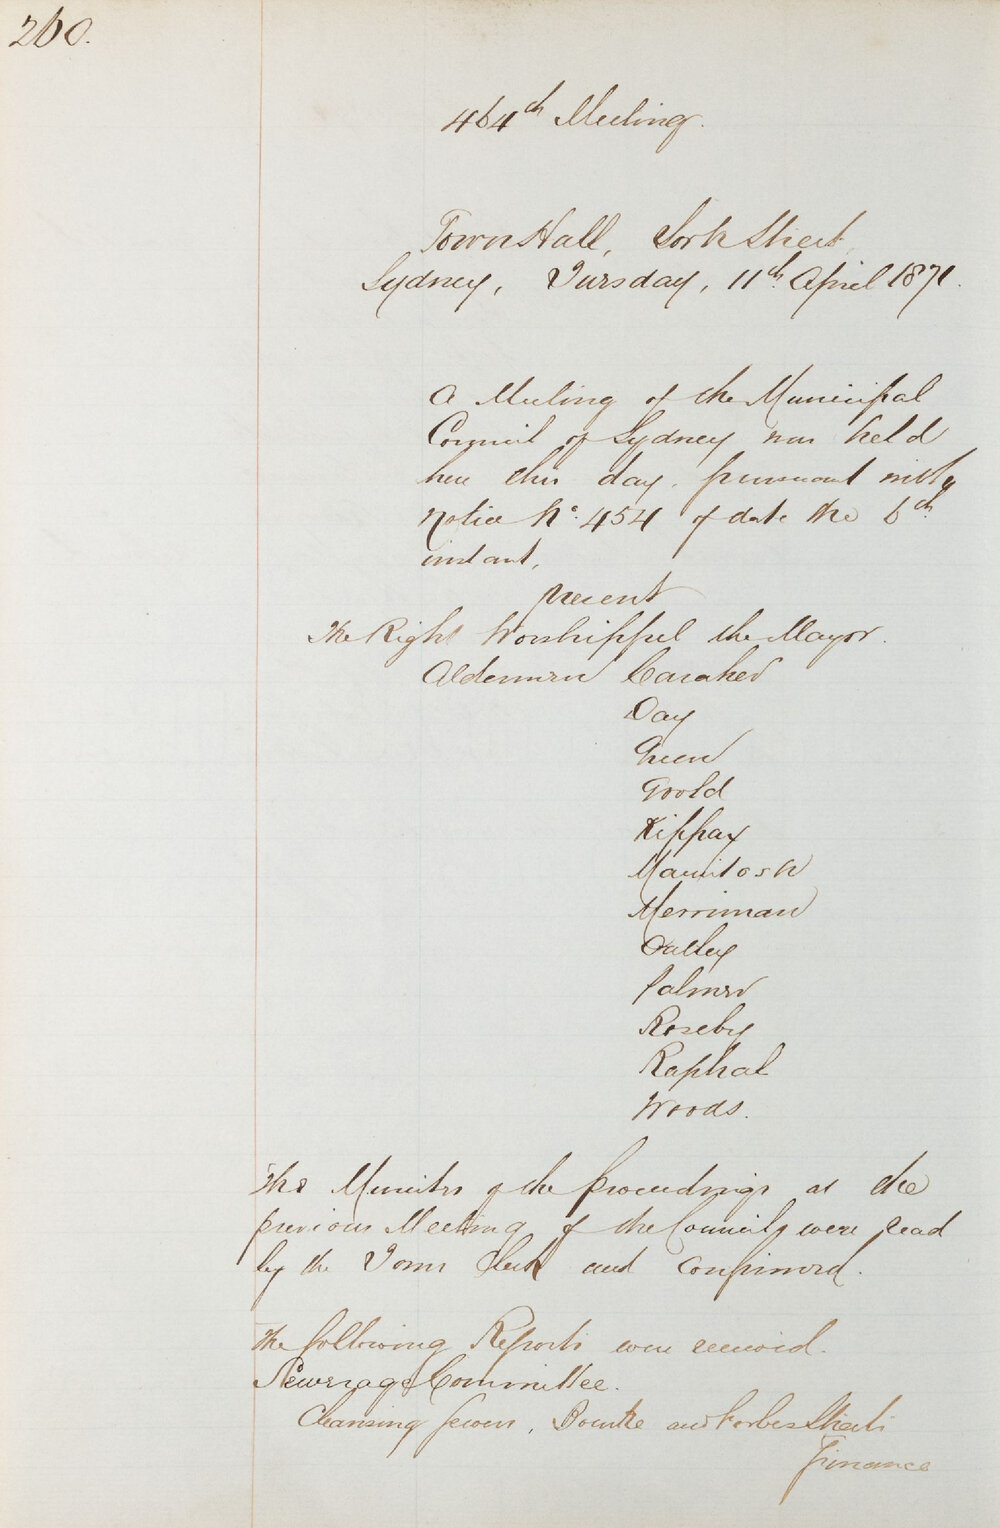 260.
464th Meeting.
Town Hall, York Street,
Sydney, Tuesday, 11th April 1871.
A Meeting of the Municipal
Council of Sydney was held
here this day, pursuant with
Notice No. 454 of date the 6th
instant,
present
The Right Worshipful the Mayor.
Aldermen Caraher
Day
Green
Goold
Kippax
Macintosh
Merriman
Oatley
Palmer
Roseby
Raphael
Woods.
The Minutes of the Proceedings at the
previous Meeting of the Council were read
by the Town Clerk and Confirmed.
The following Reports were received.
Sewerage Committee.
Cleansing Sewers, Bourke and Forbes Streets
Finance